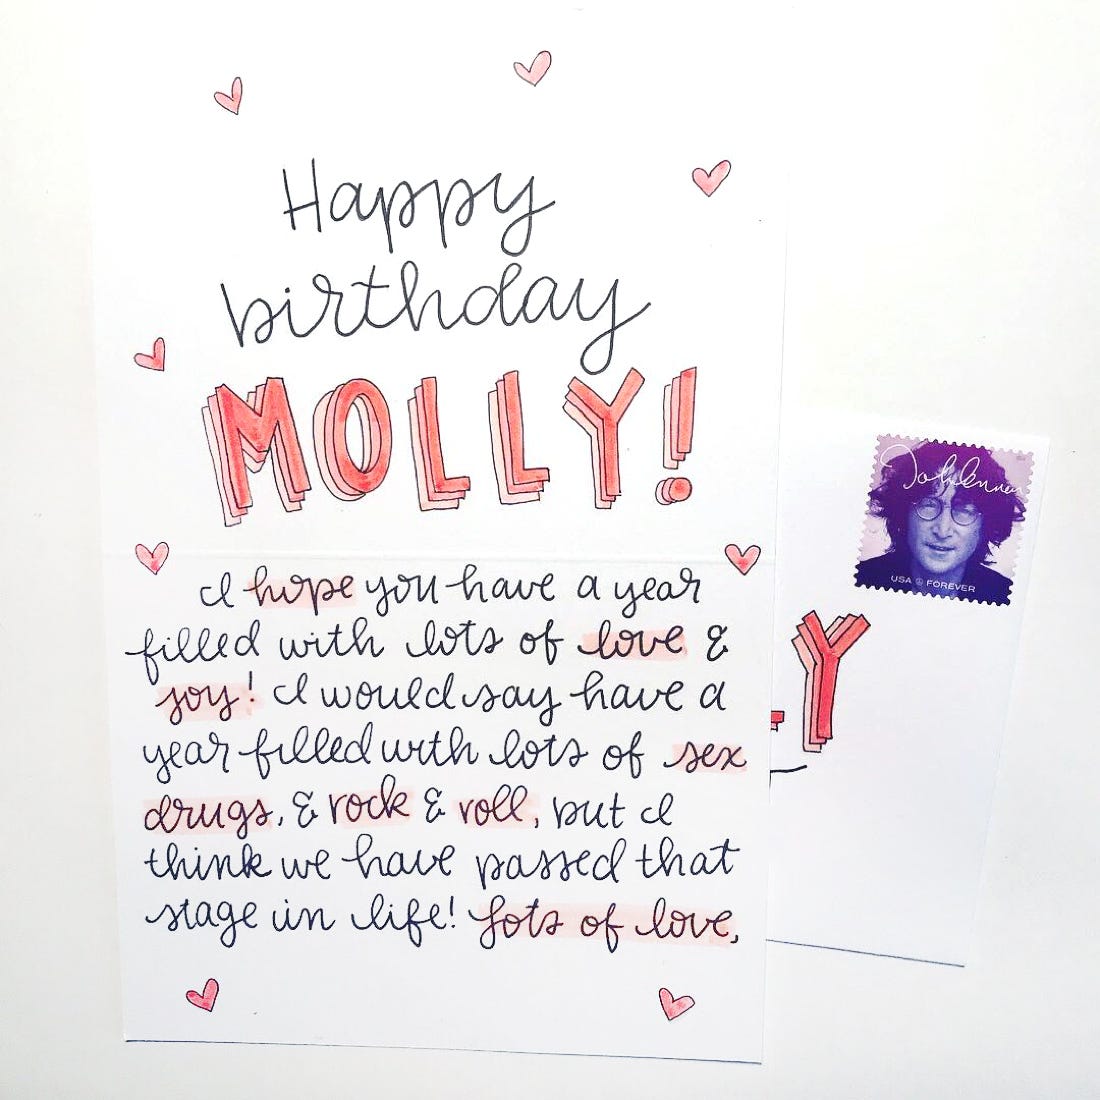 Happy
birthday
MOLLY!
I hope you have a year
filled with lots of love &
joy! I would say have a
year filled with lots of sex
drugs, & rock & roll, but I
think we have passed that
stage in life! Lots of love,
John Lennon
USA FOREVER
Y